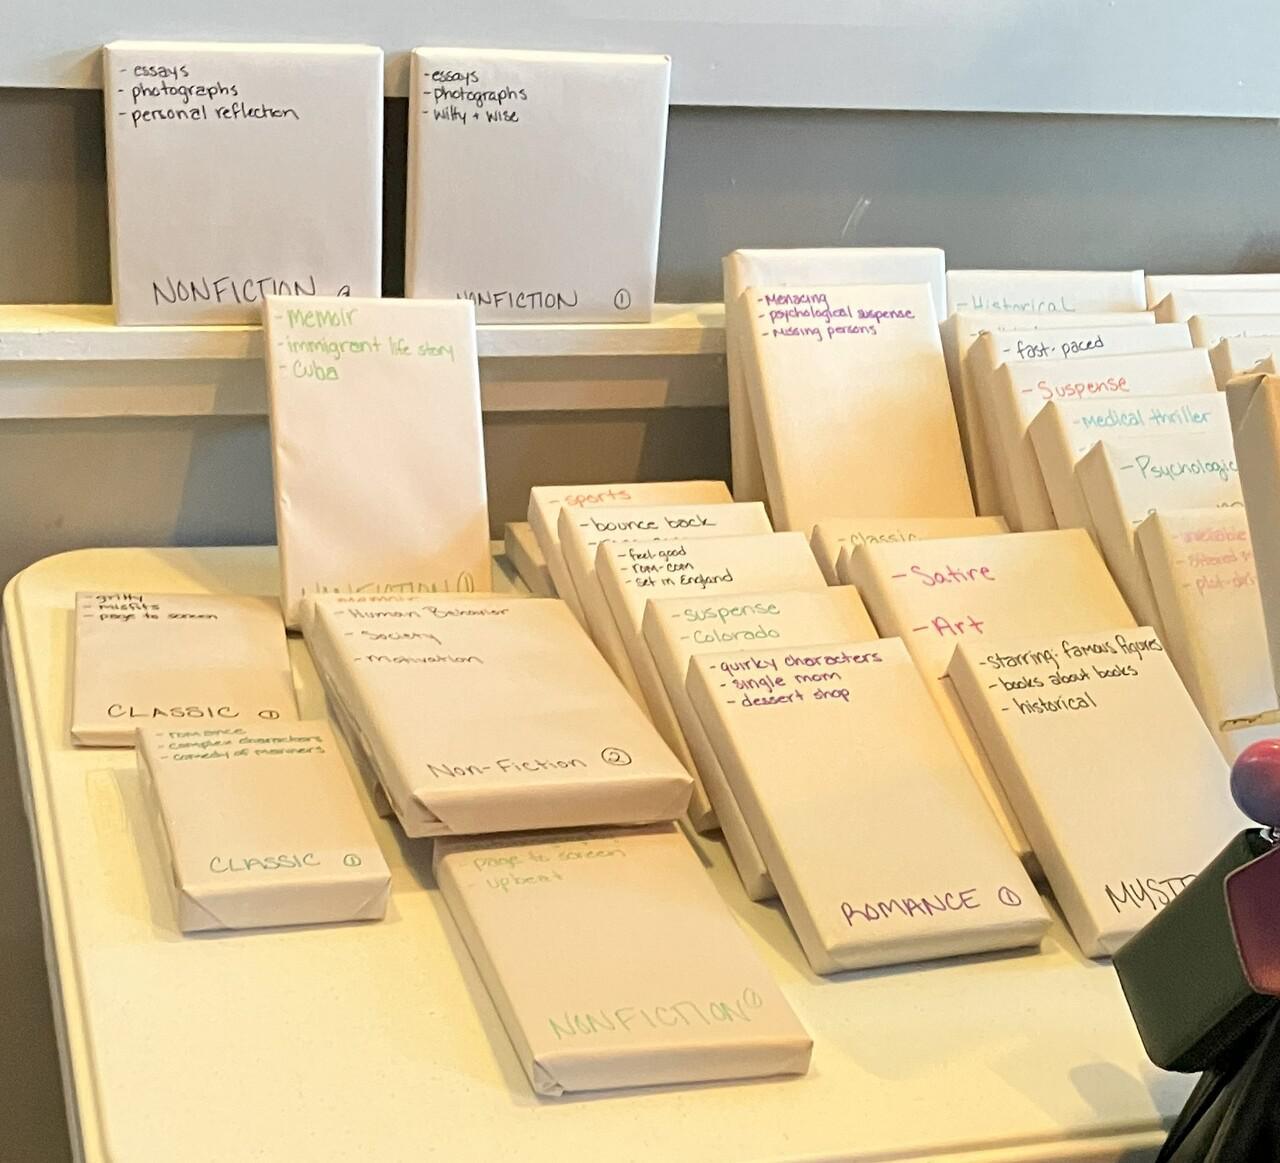 - essays
- photographs
- personal reflection
NONFICTION
- essays
- photographs
- witty + wise
NONFICTION ①
- Memoir
- immigrant life story
- Cuba
NONFICTION ①
- Menacing
- psychological suspense
- Missing persons
- Historical
- fast-paced
- Suspense
- Medical thriller
- Psychologic
- sports
- bounce back
- feel-good
- rom-com
- set in England
- suspense
- Colorado
- quirky characters
- single mom
- dessert shop
ROMANCE ①
- classic
- Satire
- Art
- starring: famous figures
- books about books
- historical
MYST
- gritty
- misfits
- page to screen
CLASSIC ①
- romance
- complex characters
- comedy of manners
CLASSIC ①
- Human Behavior
- Society
- Motivation
Non-Fiction ②
- page to screen
- upbeat
NONFICTION ①